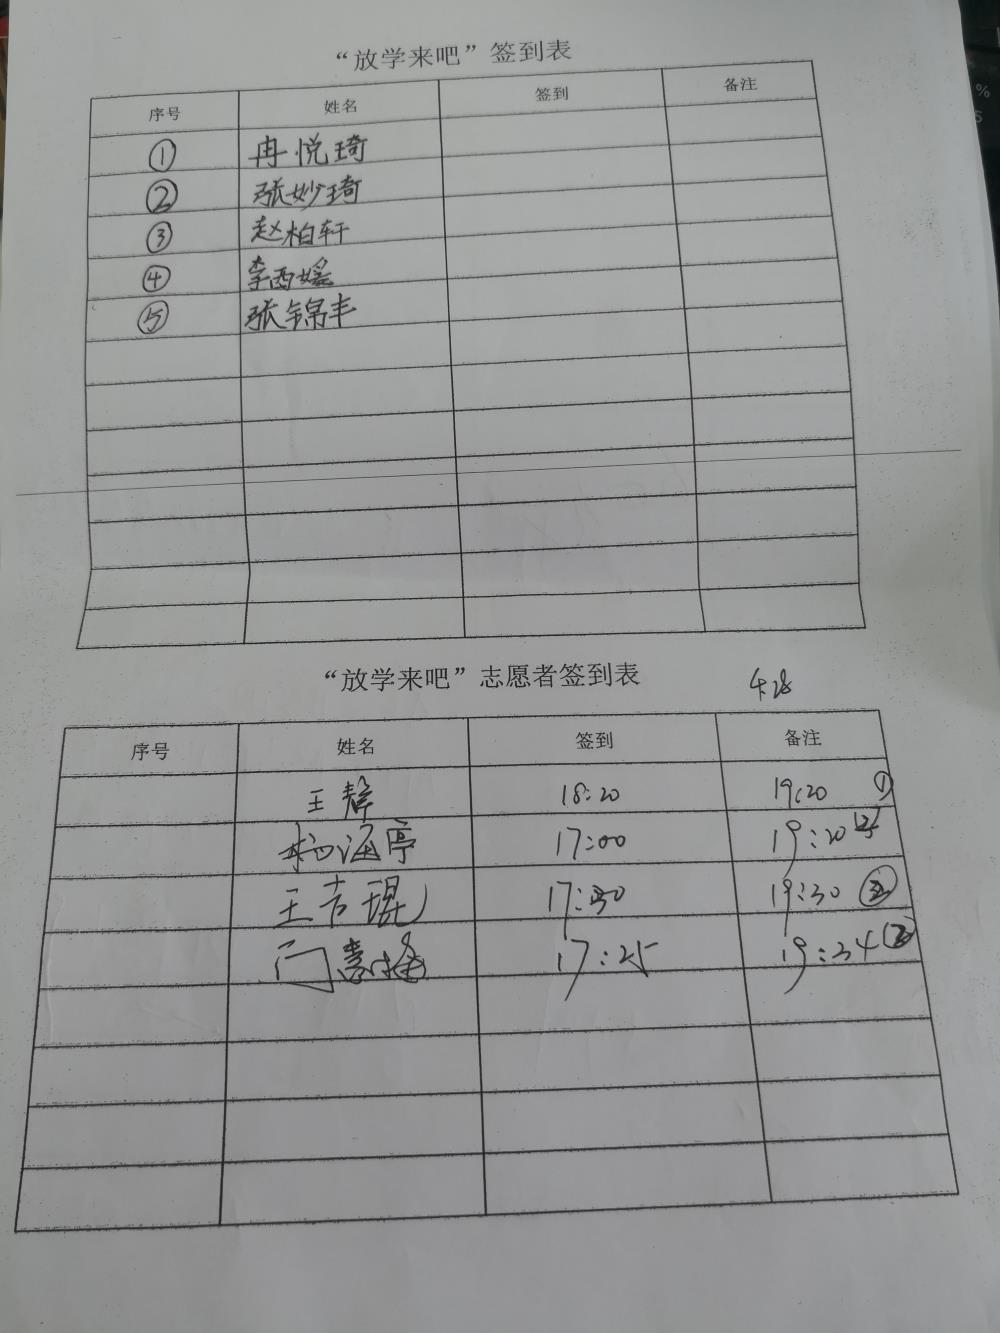 “放学来吧”签到表
序号 姓名 签到 备注
① 冉悦琦
② 张妙琦
③ 赵柏轩
④ 李西媛
⑤ 张锦丰
“放学来吧”志愿者签到表 4.28
序号 姓名 签到 备注
王静 18:20 19:20 ①
涵亭 17:00 19:20
王吉琨 17:30 19:30 ②
门慧 17:25 19:34